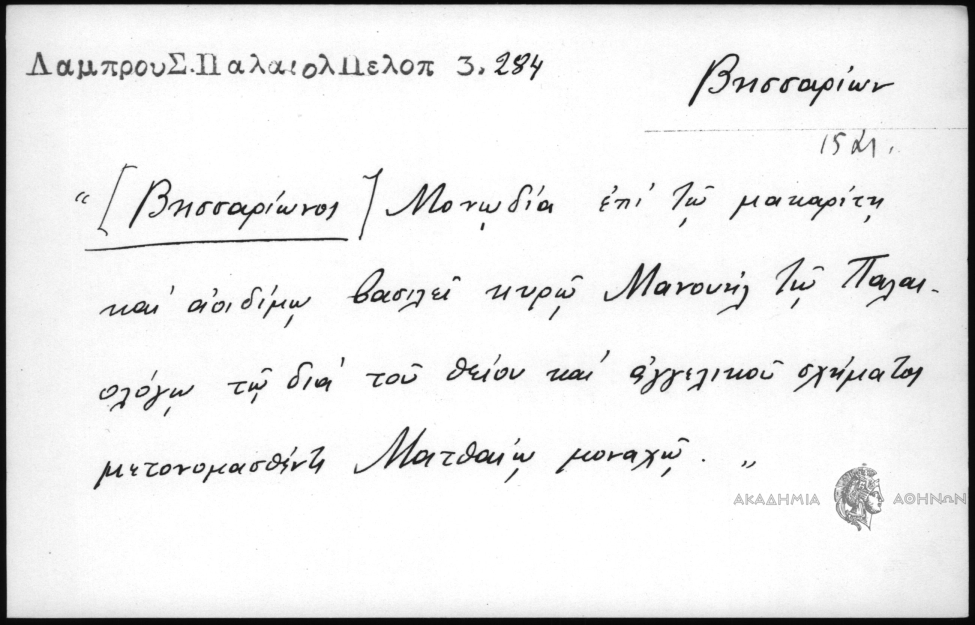 ΛαμπρουΣ.ΠαλαιολΠελοπ 3.284
Βησσαρίων
15 αι.
“[Βησσαρίωνος] Μονῳδία ἐπὶ τῷ μακαρίτῃ
καὶ ἀοιδίμῳ βασιλεῖ κυρῷ Μανουὴλ τῷ Παλαι-
ολόγῳ τῷ διὰ τοῦ θείου καὶ ἀγγελικοῦ σχήματος
μετονομασθέντι Ματθαίῳ μοναχῷ. „
ΑΚΑΔΗΜΙΑ ΑΘΗΝΩΝ